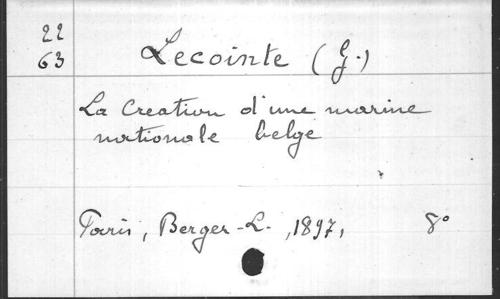 22
63
Lecointe (G.)
La Creation d'une marine
nationale belge
Paris, Berger-L., 1897, 8°